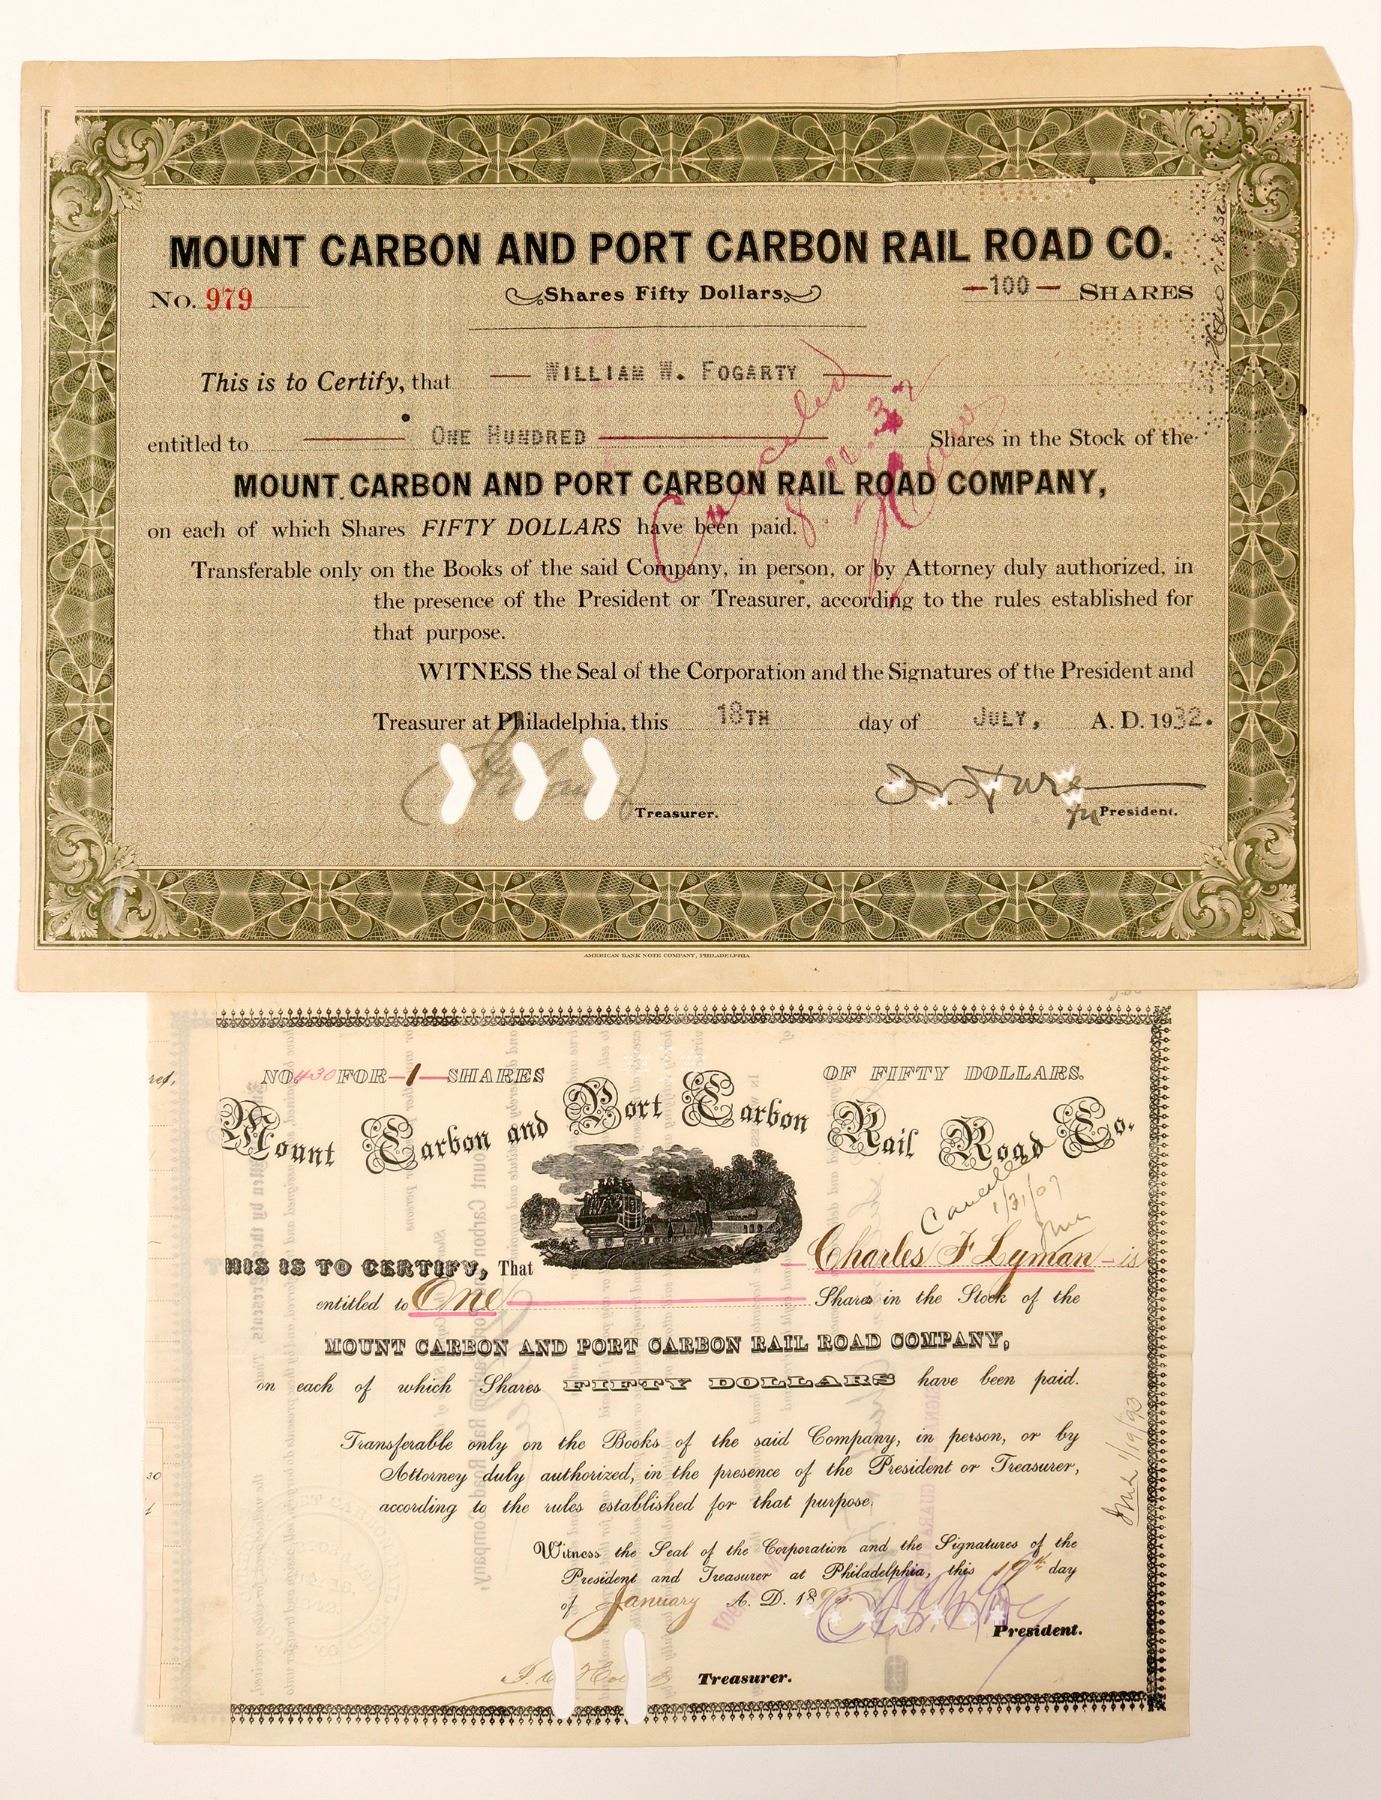 MOUNT CARBON AND PORT CARBON RAIL ROAD CO.
No. 979 Shares Fifty Dollars —100— SHARES
This is to Certify, that — WILLIAM W. FOGARTY —
entitled to ONE HUNDRED Shares in the Stock of the
MOUNT CARBON AND PORT CARBON RAIL ROAD COMPANY,
on each of which Shares FIFTY DOLLARS have been paid.
Transferable only on the Books of the said Company, in person, or by Attorney duly authorized, in
the presence of the President or Treasurer, according to the rules established for
that purpose.
WITNESS the Seal of the Corporation and the Signatures of the President and
Treasurer at Philadelphia, this 18TH day of JULY, A. D. 1932.
Treasurer. President.
Cancelled
AMERICAN BANK NOTE COMPANY, PHILADELPHIA
NO 430 FOR —1— SHARES OF FIFTY DOLLARS.
Mount Carbon and Port Carbon Rail Road Co.
Cancelled
1/31/07
THIS IS TO CERTIFY, That — Charles F Lyman — is
entitled to One Shares in the Stock of the
MOUNT CARBON AND PORT CARBON RAIL ROAD COMPANY,
on each of which Shares FIFTY DOLLARS have been paid.
Transferable only on the Books of the said Company, in person, or by
Attorney duly authorized, in the presence of the President or Treasurer,
according to the rules established for that purpose.
Witness the Seal of the Corporation and the Signatures of the
President and Treasurer at Philadelphia, this 19th day
of January A. D. 1893.
President.
Treasurer.
1/19/93